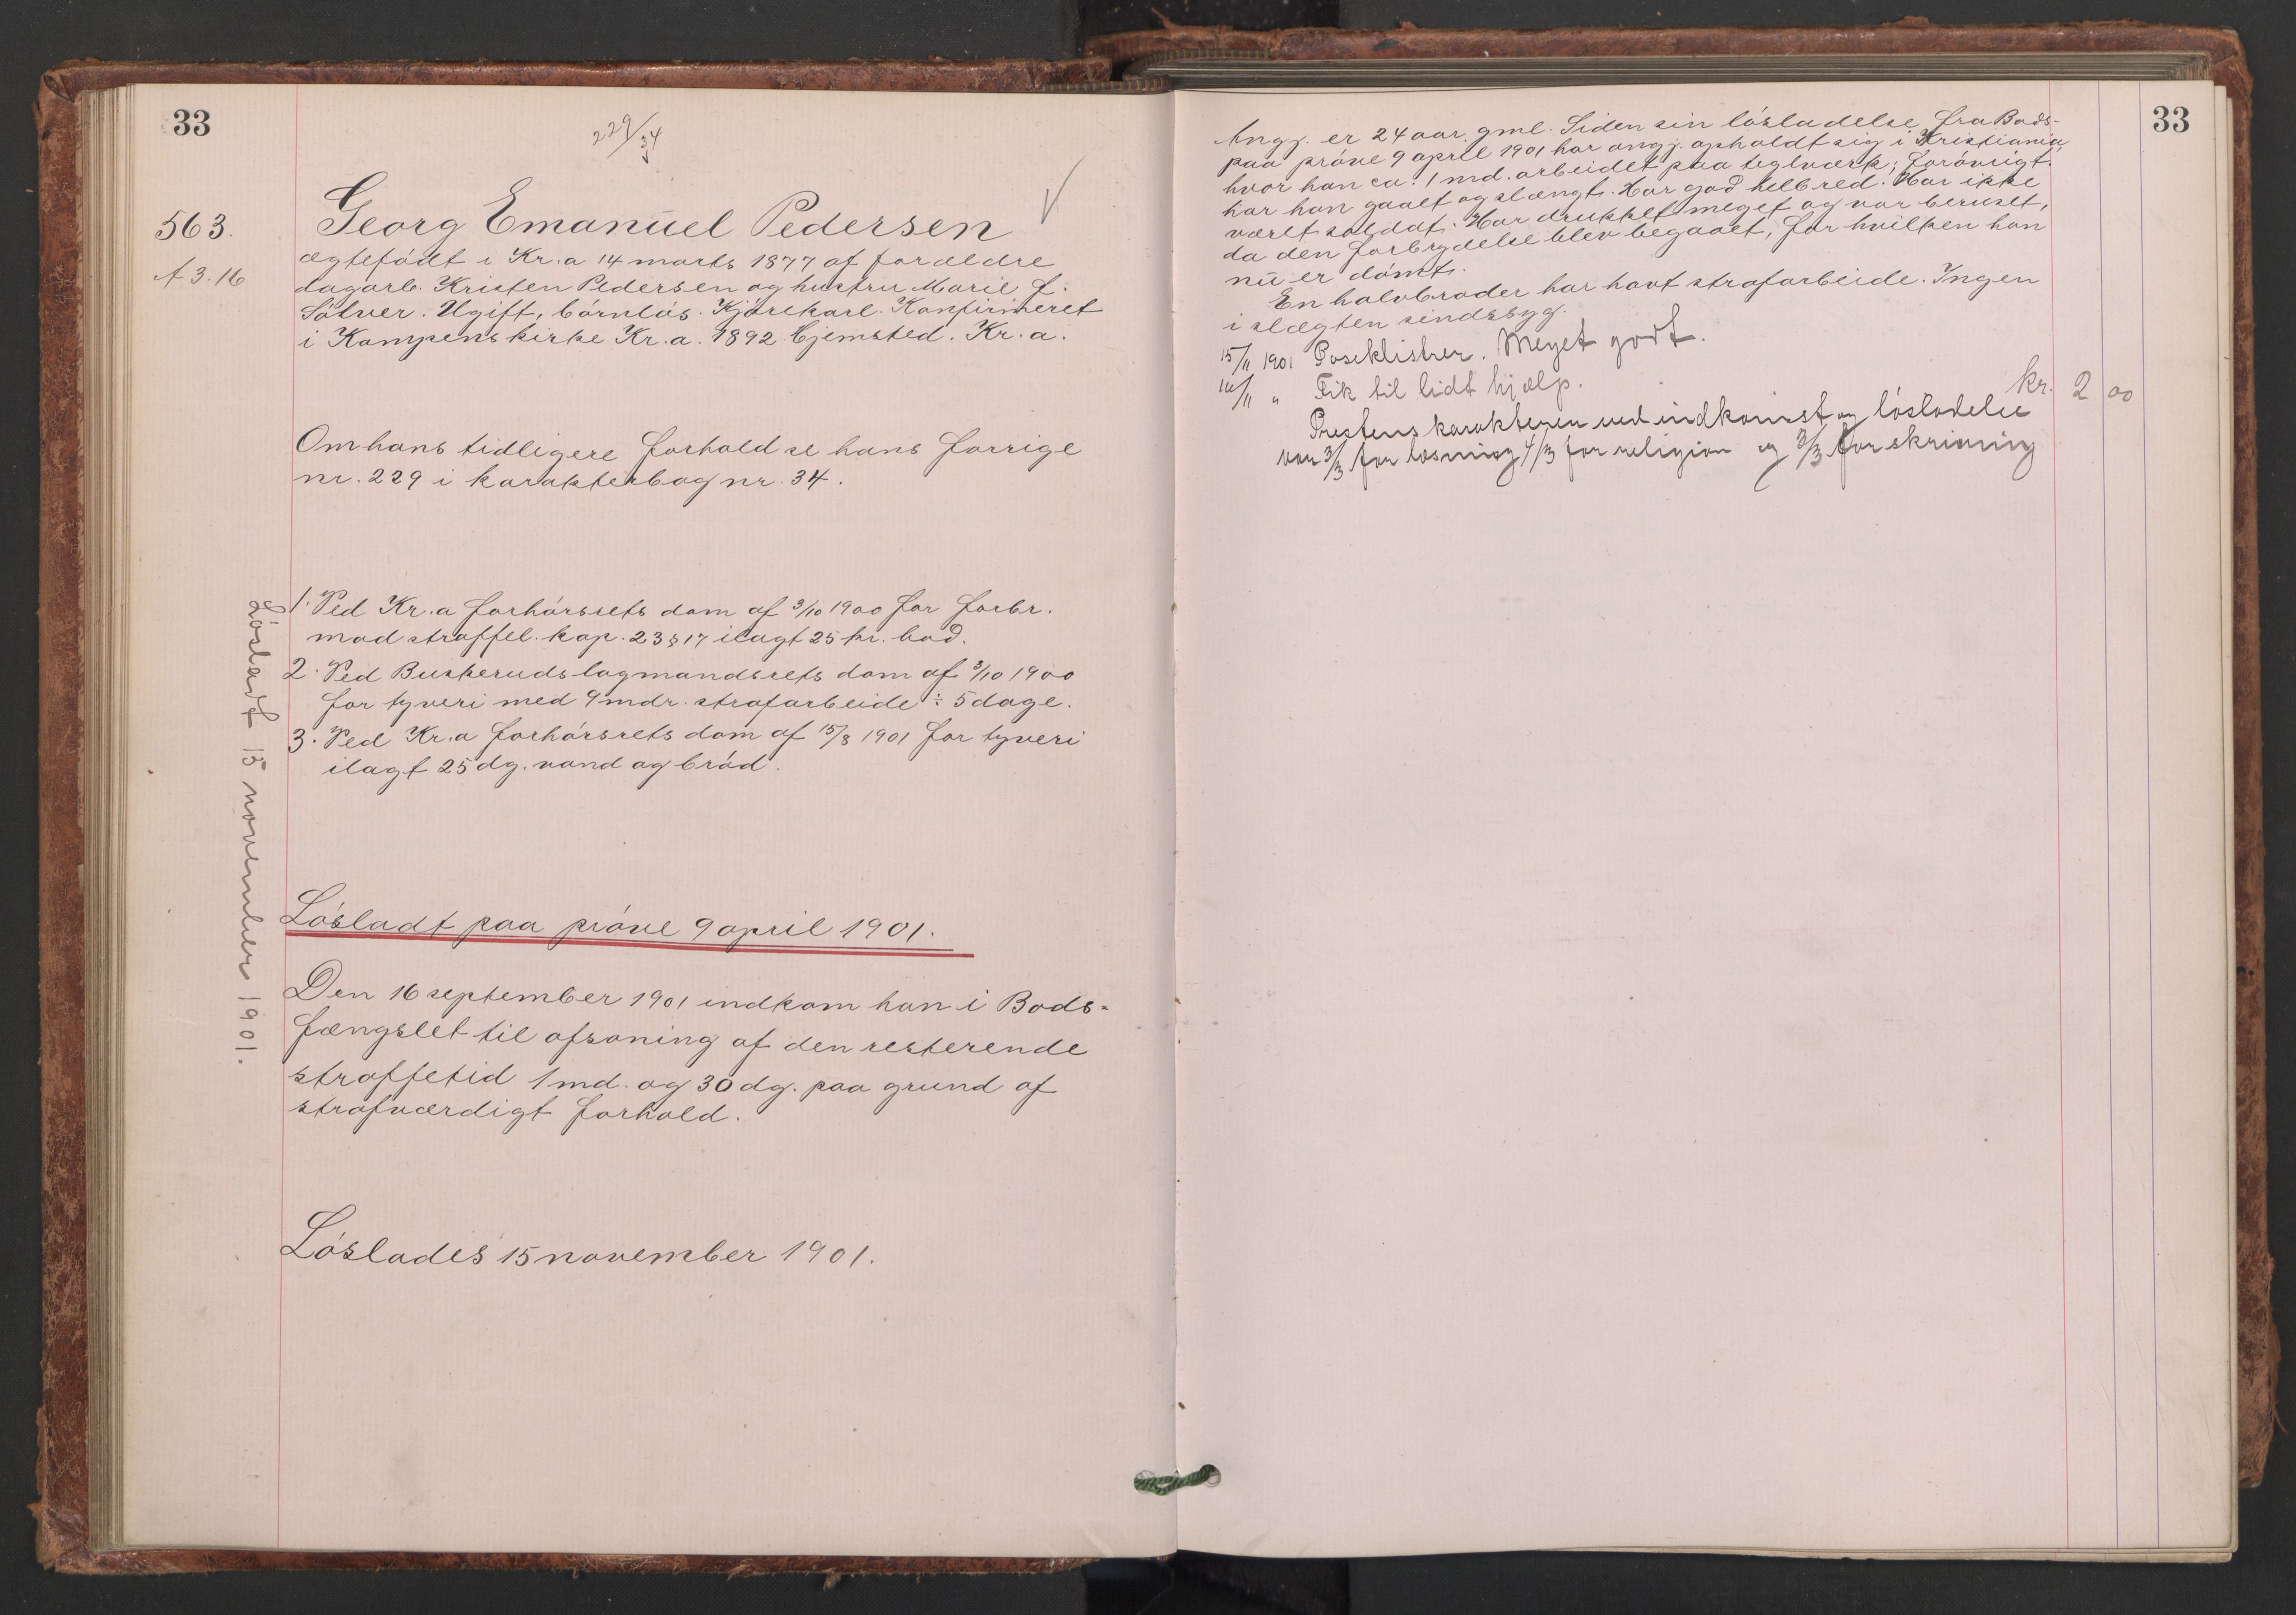 33
229/34
563.
A 3.16
Georg Emanuel Pedersen
ægtefødt i Kr.a 14 marts 1877 af forældre
dagarb. Kristen Pedersen og hustru Marie f.
Sølver. Ugift, børnløs. Kjørekarl. Konfirmeret
i Kampens kirke Kr.a. 1892. Hjemsted. Kr.a.
Om hans tidligere forhold se hans forrige
nr. 229 i karakterbog nr. 34.
1. Ved Kr.a forhørsrets dom af 3/10 1900 for forbr.
mod straffel. kap. 23 § 17 ilagt 25 kr. bod.
2. Ved Buskeruds lagmandsrets dom af 3/10 1900
for tyveri med 9 mdr. strafarbeide ÷ 5 dage.
3. Ved Kr.a forhørsrets dom af 15/8 1901 for tyveri
ilagt 25 dg. vand og brød.
Løsladt 15 november 1901.
Løsladt paa prøve 9 april 1901.
Den 16 september 1901 indkom han i Bods-
fængslet til afsoning af den resterende
straffetid 1 md. og 30 dg. paa grund af
strafværdigt forhold.
Løslades 15 november 1901.
33
Angj. er 24 aar gml. Siden sin løsladelse fra Bods-
paa prøve 9 april 1901 har angj. opholdt sig i Kristiania
hvor han ca. 1 md. arbeidet paa teglværk; forøvrigt
har han gaaet og slængt. Har god helbred. Har ikke
været soldat. Har drukket meget og var beruset,
da den forbrydelse blev begaaet, for hvilken han
nu er dømt.
En halvbroder har havt strafarbeide. Ingen
i slægten sindssyg.
15/11 1901 Poseklistrer. Meget godt.
14/11 " Fik til lidt hjælp. kr. 2 00
Prestens karakteren ved indkomst og løsladelse
var 3/3 for læsning 4/3 for religion og 3/3 for skrivning